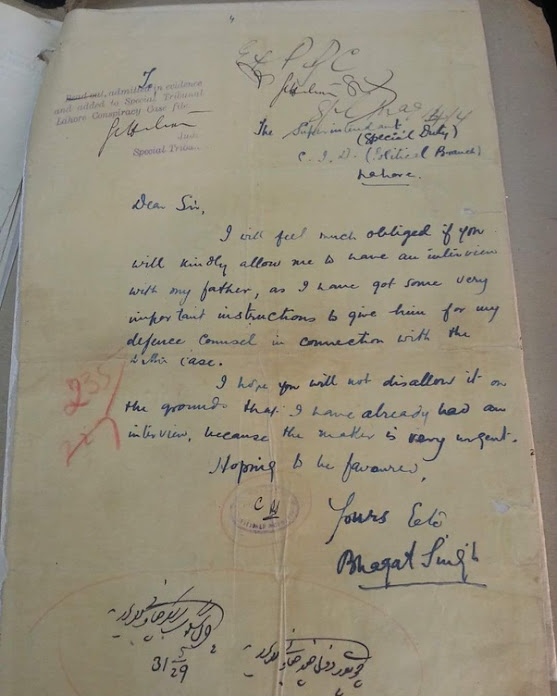 To,
Read out, admitted in evidence
and added to Special Tribunal
Lahore Conspiracy Case file
Judge
Special Tribun
The Superintendent
(Special Duty)
C. I. D. (Political Branch)
Lahore.
Dear Sir,
I will feel much obliged if you
will kindly allow me to have an interview
with my father, as I have got some very
important instructions to give him for my
defence counsel in connection with the
Delhi case.
I hope you will not disallow it on
the grounds that I have already had an
interview, because the matter is very urgent.
Hoping to be favoured,
Yours Etc
Bhagat Singh
235
31 5/29